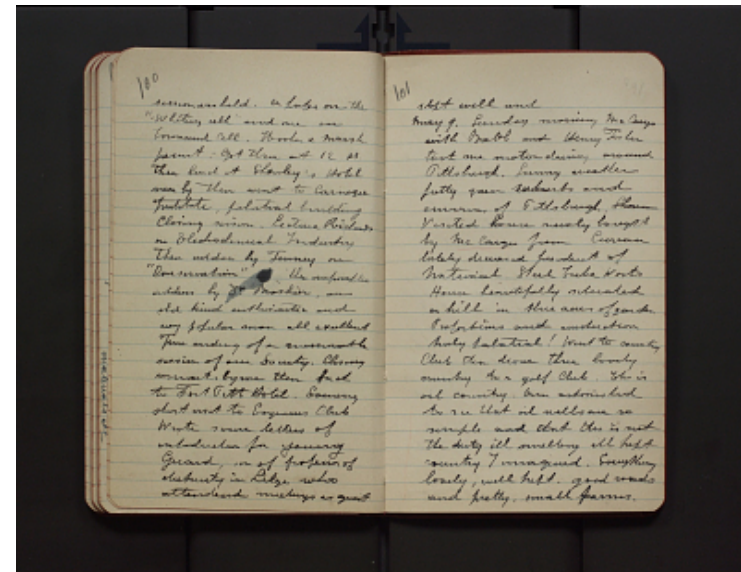 100
session was held. on the
"Whitney cell" and one on
Townsend Cell. Hooker a
: Got thru at 12 M
Then lunch at Hotel
near by then went to Carnegie
Institute, palatial building
Closing session. Lecture Richards
on Electrochemical Industry
then address by Tenney on
"Conservation"
address by an
old kind enthusiastic and
very popular man all excellent
True ending of a memorable
session of our Society. Closing
remarks by me then back
to Fort Pitt Hotel. Evening
short visit to Engineers Club
Wrote some letters of
introduction for young
Gerard, son of professor of
electricity in Liège who
attended meetings as guest
101
slept well and
May 9. Sunday morning McCargo
with and Henry Fisher
took me motor driving around
Pittsburgh. Sunny weather
pretty green suburbs and
environs of Pittsburgh.
Visited house newly bought
by McCargo from
lately deceased president of
National Steel Tube Works
House beautifully situated
on hill in three acres of garden
Proportions and construction
truly palatial! Went to country
Club then drove thru lovely
country to a golf Club. This is
oil country. Am astonished
to see that oil wells are so
simple and that this is not
the dirty ill smelling ill kept
country I imagined. Everything
lovely, well kept. good roads
and pretty, small farms.